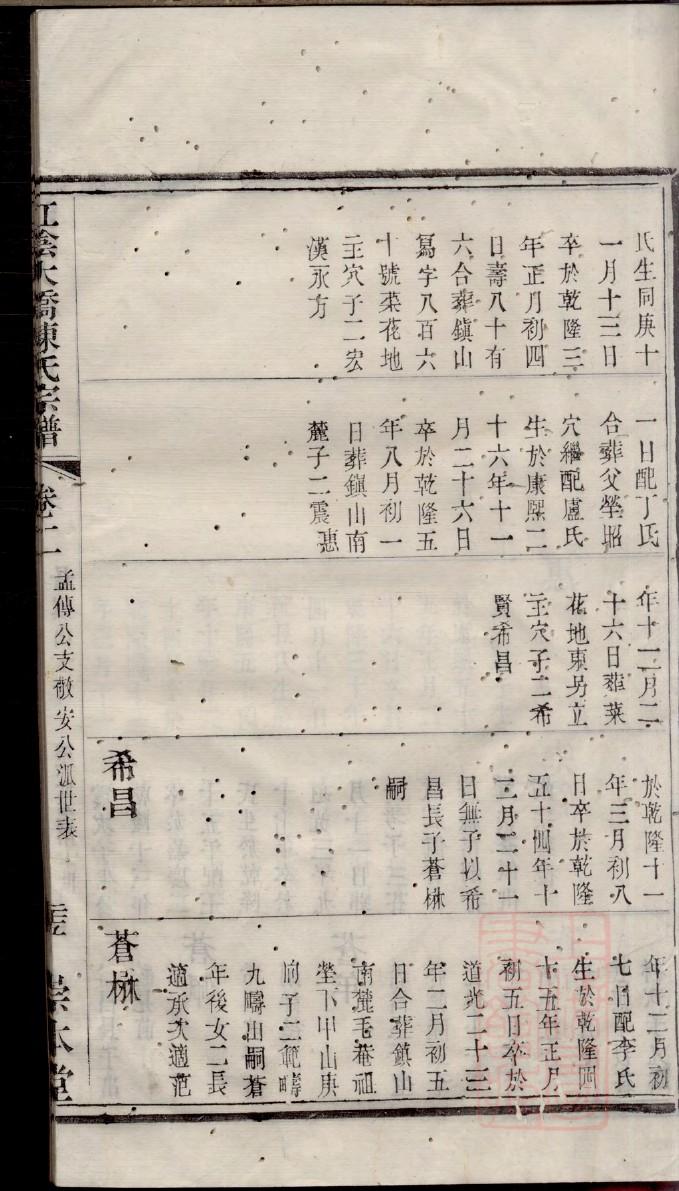 氏生同庚十
一月十三日
卒於乾隆三
年正月初四
日壽八十有
六合葬鎮山
寫字八百六
十號菜花地
主穴子二宏
漢永方
一日配丁氏
合葬父塋昭
穴繼配盧氏
生於康熙二
十六年十一
月二十六日
卒於乾隆五
年八月初一
日葬鎮山南
麓子二震惠
年十二月二
十六日葬菜
花地東另立
主穴子二希
賢希昌
於乾隆十一
年三月初八
日卒於乾隆
五十四年十
二月二十一
日無子以希
昌長子蒼楙
嗣
希昌
年十二月初
七日配李氏
生於乾隆四
十五年正月
初五日卒於
道光二十三
年二月初五
日合葬鎮山
南麓毛巷祖
塋下甲山庚
向子二範疇
九疇出嗣蒼
年後女二長
適承次適范
蒼楙
江陰大橋陳氏宗譜
卷二
孟傳公支敬安公派世表
崇本堂